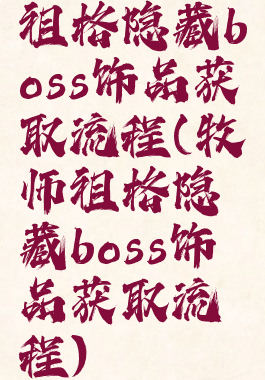 祖格隐藏b
oss饰品获
取流程(牧
师祖格隐
藏boss饰
品获取流
程)